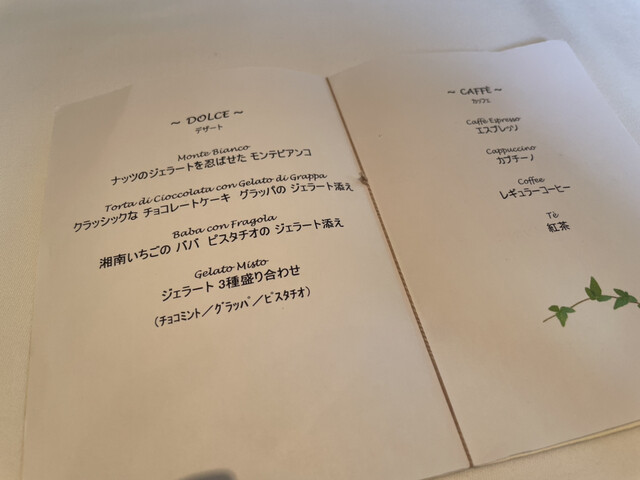 ~ DOLCE ~
デザート
Monte Bianco
ナッツのジェラートを忍ばせた モンテビアンコ
Torta di Cioccolata con Gelato di Grappa
クラッシックな チョコレートケーキ グラッパの ジェラート添え
Baba con Fragola
湘南いちごの ババ ピスタチオの ジェラート添え
Gelato Misto
ジェラート 3種盛り合わせ
(チョコミント/グラッパ/ピスタチオ)
~ CAFFÈ ~
カフェ
Caffè Espresso
エスプレッソ
Cappuccino
カプチーノ
Coffee
レギュラーコーヒー
Tè
紅茶